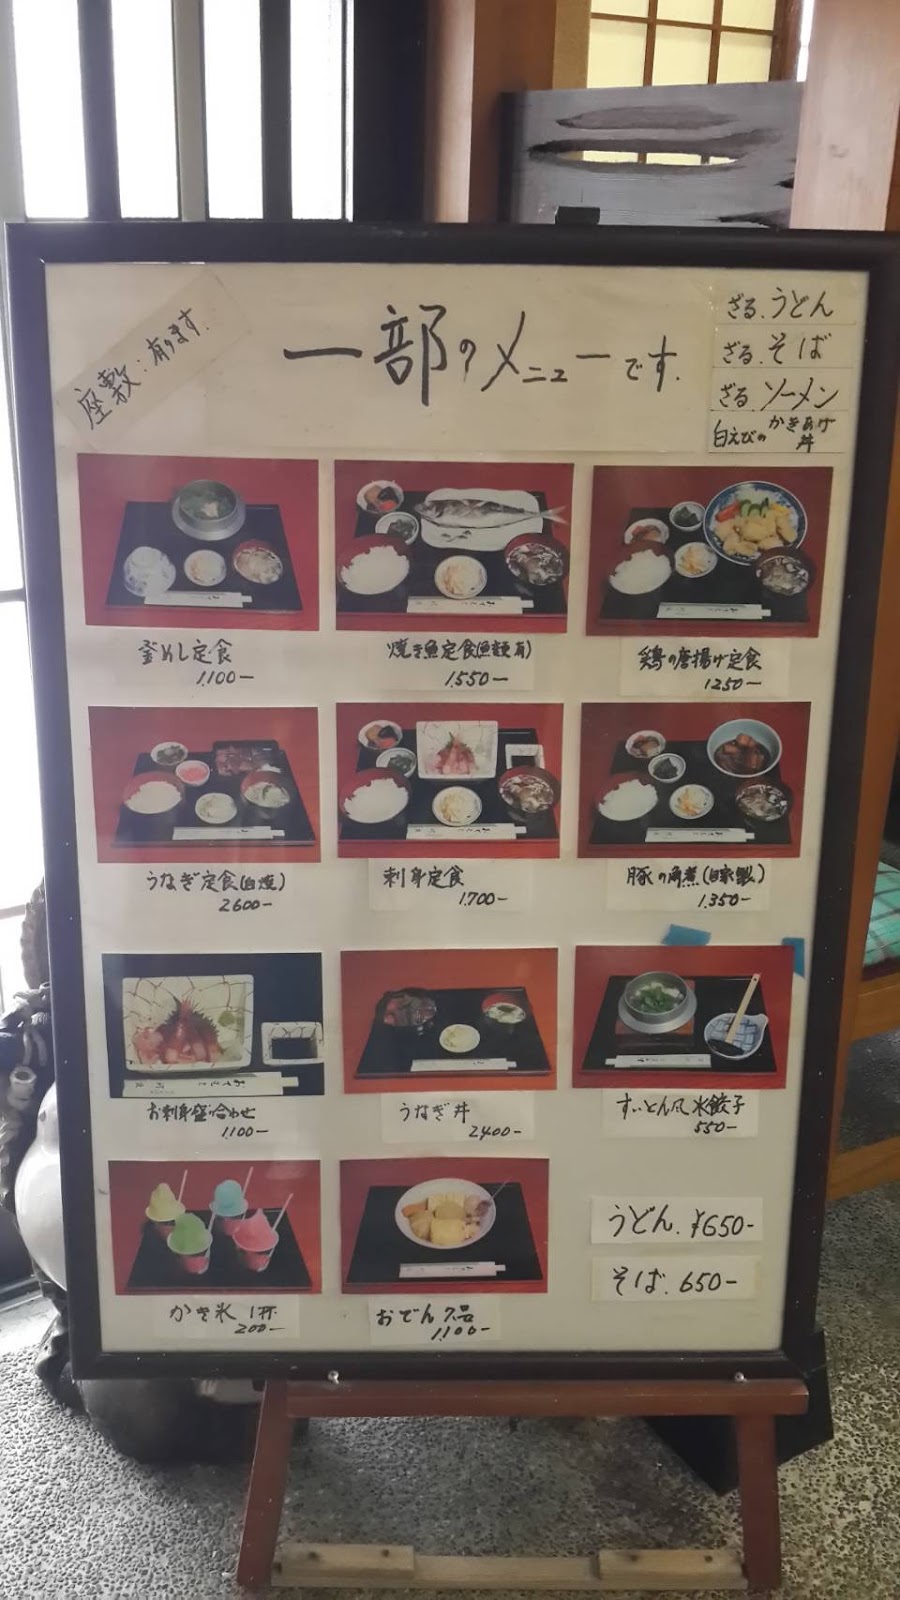 座敷:有ります.
一部のメニューです.
ざる.うどん
ざる.そば
ざる.ソーメン
白えびのかきあげ丼
釜めし定食
1,100ー
焼き魚定食(魚種有)
1,550ー
鶏の唐揚げ定食
1250ー
うなぎ定食(白焼)
2600ー
刺身定食
1,700ー
豚の角煮(自家製)
1,350ー
お刺身盛り合わせ
1,100ー
うなぎ丼
2400ー
すいとん風水餃子
550ー
かき氷 1杯
200ー
おでん7品
1,100ー
うどん.¥650-
そば.650-